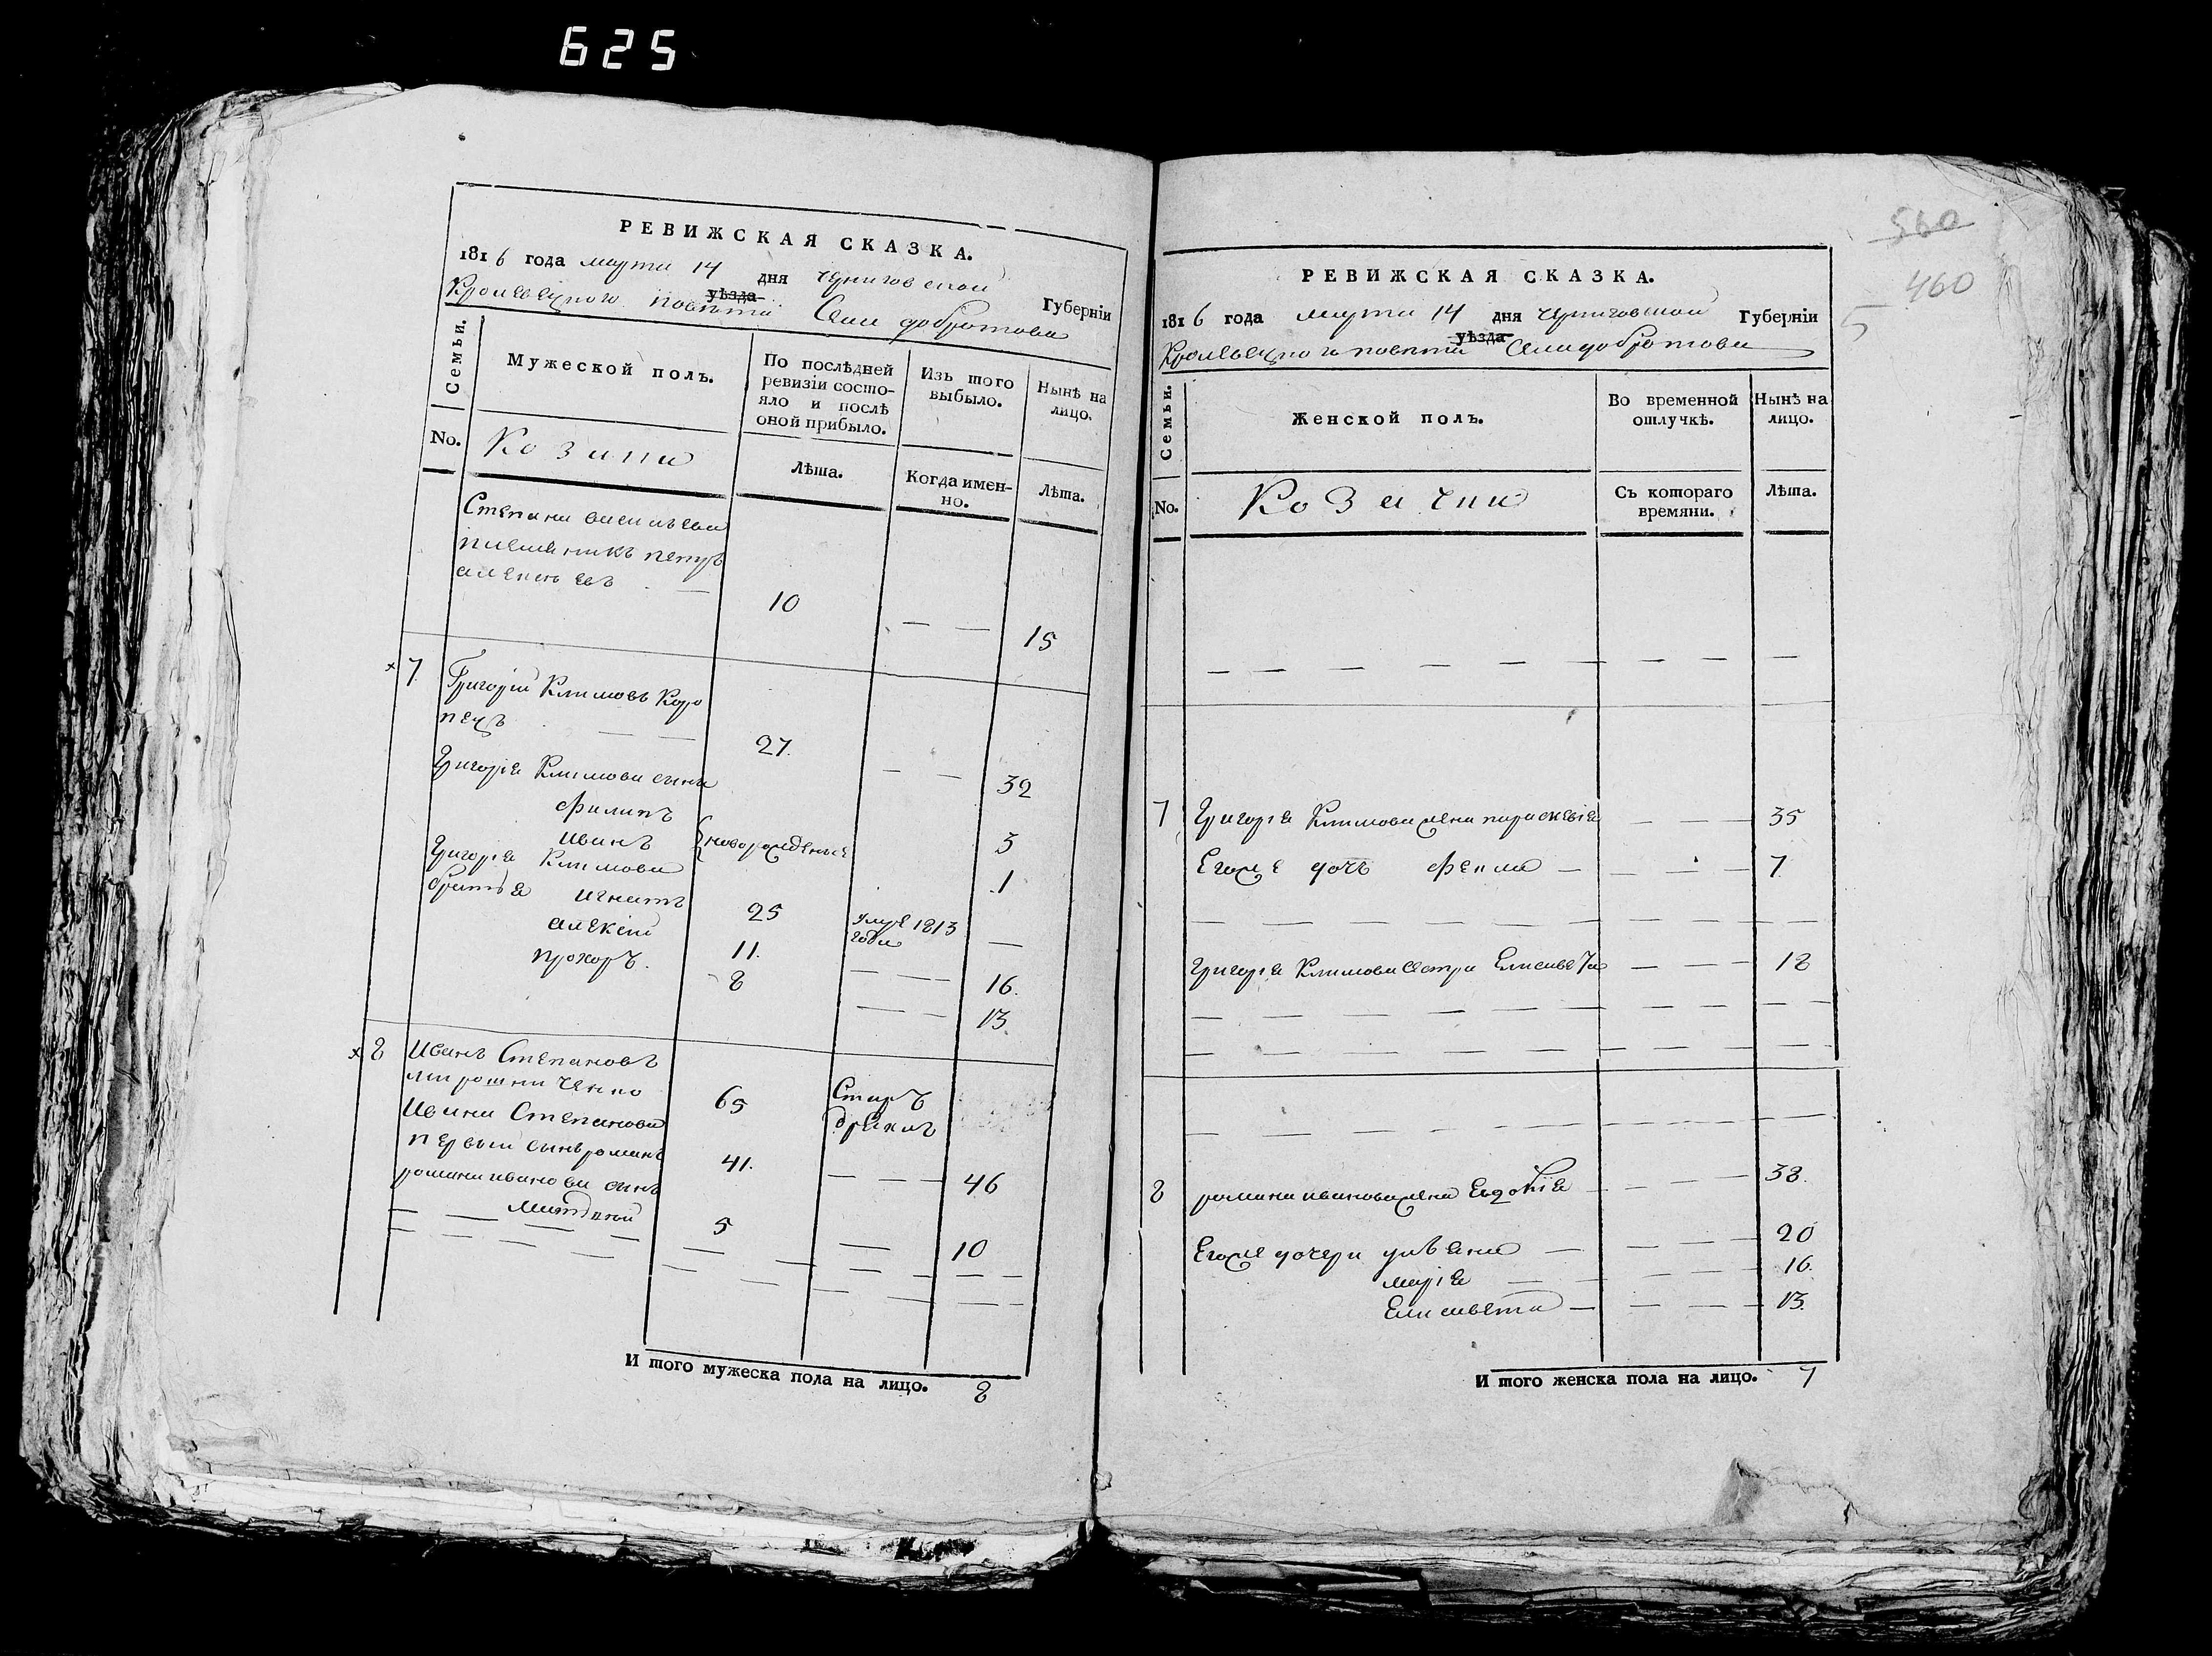 625
РЕВИЖСКАЯ СКАЗКА.
1816 года марта 14 дня Черниговской Губерніи
Кролевецкого повѣта уѣзда Села добротова
Семьи.
Мужеской полъ.
По послѣдней ревизіи состояло и послѣ оной прибыло.
Изъ того выбыло.
Нынѣ на лицо.
No.
Козаки
Лѣта.
Когда именно.
Лѣта.
Степана васильева
племеникъ петръ
алексѣевъ — 10 — — 15
7 Григорій Климовъ Коро
пецъ — — 27. — — 32
Григорія Климова сыны
филипъ 3
иванъ {новорожденные 1
Григорія Климова
братья игнатъ 25 умре 1813 года —
алексій 11. — — 16.
прохоръ. 8 — — 13
8 Иванъ Степановъ
мирошниченко 65 Старъ дряхлъ
Ивана Степанова
первый сынъ романъ 41. — — 46
романа иванова сынъ
матвѣй 5 — 10
И того мужеска пола на лицо. 8
560
460
5
РЕВИЖСКАЯ СКАЗКА.
1816 года марта 14 дня Черниговской Губерніи
Кролевецкого повѣта уѣзда Села добротова
Семьи.
Женской полъ.
Во временной отлучкѣ.
Нынѣ на лицо.
No.
Козачки
Съ котораго времяни.
Лѣта.
7 Григорія Климова жена параскевія — — — 35
Егоже дочь фекла — — — — 7
Григорія Климова сестра Елисавета — — — 18
8 романа иванова жена Евдокія — — — 38.
Егоже дочери уляна — — — — 20
марія — — — — 16.
Елисавета — — — — 13.
И того женска пола на лицо. 7